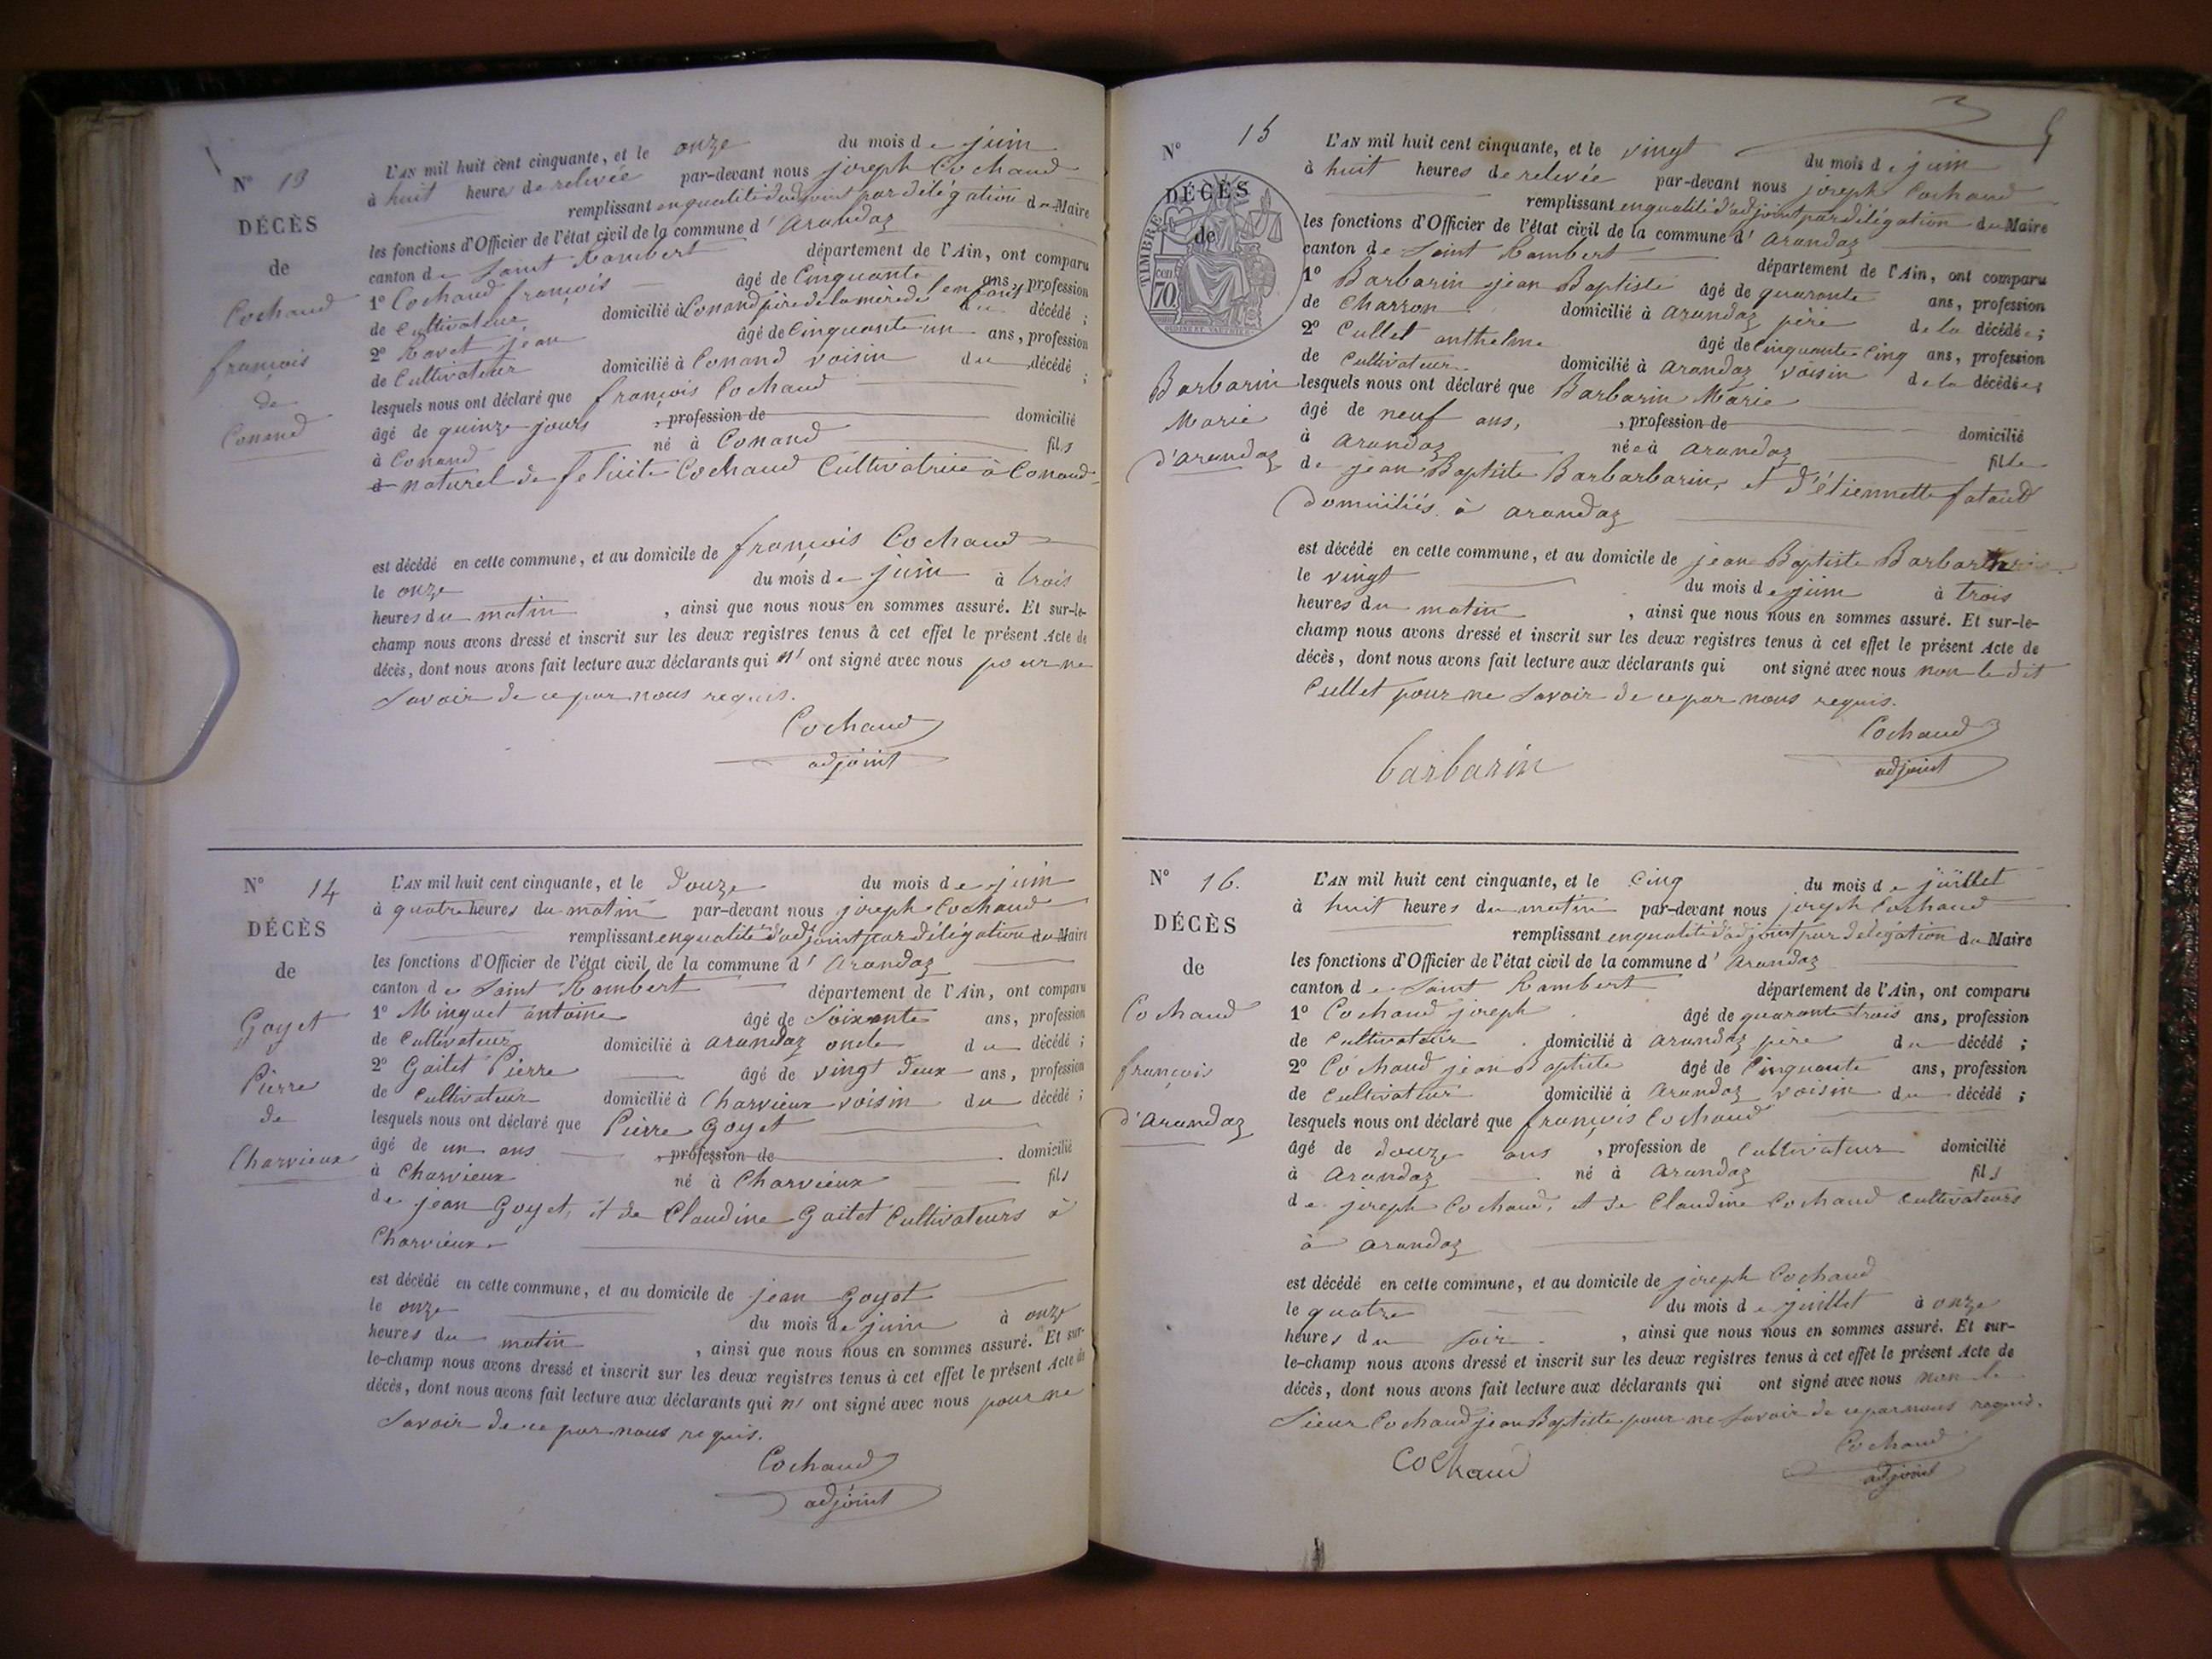 N° 13
DÉCÈS
de
Cochaud
françois
de
Conand
L'AN mil huit cent cinquante, et le onze du mois de juin
à huit heures de relevée par-devant nous joseph Cochaud
remplissant en qualité d'adjoint par délégation du Maire
les fonctions d'Officier de l'état civil de la commune d' arandaz
canton de Saint Rambert département de l'Ain, ont comparu
1° Cochaud françois âgé de Cinquante ans, profession
de Cultivateur domicilié à Conand père de la mère de l'enfant du décédé ;
2° Ravet jean âgé de Cinquante un ans, profession
de Cultivateur domicilié à Conand voisin du décédé ;
lesquels nous ont déclaré que françois Cochaud
âgé de quinze jours , profession de domicilié
à Conand né à Conand fils
de naturel de felicite Cochaud Cultivatrice à Conand
est décédé en cette commune, et au domicile de françois Cochaud
le onze du mois de juin à trois
heures du matin , ainsi que nous nous en sommes assuré. Et sur-le-
champ nous avons dressé et inscrit sur les deux registres tenus à cet effet le présent Acte de
décès, dont nous avons fait lecture aux déclarants qui n' ont signé avec nous pour ne
Savoir de ce par nous requis.
Cochaud
adjoint
N° 14
DÉCÈS
de
Goyet
Pierre
de
Charvieux
L'AN mil huit cent cinquante, et le douze du mois de juin
à quatre heures du matin par-devant nous joseph Cochaud
remplissant en qualité d'adjoint par délégation du Maire
les fonctions d'Officier de l'état civil de la commune d' arandaz
canton de Saint Rambert département de l'Ain, ont comparu
1° Minguet antoine âgé de Soixante ans, profession
de Cultivateur domicilié à arandaz oncle du décédé ;
2° Gaitet Pierre âgé de vingt deux ans, profession
de Cultivateur domicilié à Charvieux voisin du décédé ;
lesquels nous ont déclaré que Pierre Goyet
âgé de un ans , profession de domicilié
à Charvieux né à Charvieux fils
de jean Goyet, et de Claudine Gaitet Cultivateurs à
Charvieux
est décédé en cette commune, et au domicile de jean Goyet
le onze du mois de juin à onze
heures du matin , ainsi que nous nous en sommes assuré. Et sur-
le-champ nous avons dressé et inscrit sur les deux registres tenus à cet effet le présent Acte de
décès, dont nous avons fait lecture aux déclarants qui n' ont signé avec nous pour ne
Savoir de ce par nous requis.
Cochaud
adjoint
N° 15
DÉCÈS
de
TIMBRE
70
Barbarin
Marie
d'arandaz
L'AN mil huit cent cinquante, et le vingt du mois de juin
à huit heures de relevée par-devant nous joseph Cochaud
remplissant en qualité d'adjoint par délégation du Maire
les fonctions d'Officier de l'état civil de la commune d' arandaz
canton de Saint Rambert département de l'Ain, ont comparu
1° Barbarin jean Baptiste âgé de quarante ans, profession
de Charron domicilié à arandaz père de la décédée ;
2° Cullet anthelme âgé de Cinquante Cinq ans, profession
de Cultivateur domicilié à arandaz voisin de la décédée ;
lesquels nous ont déclaré que Barbarin Marie
âgé de neuf ans, , profession de domicilié
à arandaz née à arandaz fille
de jean Baptiste Barbarbarin, et d'étiennette fataud
Domiciliés à arandaz
est décédé en cette commune, et au domicile de jean Baptiste Barbarin
le vingt du mois de juin à trois
heures du matin , ainsi que nous nous en sommes assuré. Et sur-le-
champ nous avons dressé et inscrit sur les deux registres tenus à cet effet le présent Acte de
décès, dont nous avons fait lecture aux déclarants qui ont signé avec nous non le dit
Cullet pour ne Savoir de ce par nous requis.
Cochaud
barbarin adjoint
N° 16.
DÉCÈS
de
Cochaud
françois
d'arandaz
L'AN mil huit cent cinquante, et le Cinq du mois de juillet
à huit heures du matin par-devant nous joseph Cochaud
remplissant en qualité d'adjoint par delegation du Maire
les fonctions d'Officier de l'état civil de la commune d' arandaz
canton de Saint Rambert département de l'Ain, ont comparu
1° Cochaud joseph âgé de quarante trois ans, profession
de Cultivateur domicilié à arandaz père du décédé ;
2° Cochaud jean Baptiste âgé de Cinquante ans, profession
de Cultivateur domicilié à arandaz voisin du décédé ;
lesquels nous ont déclaré que françois Cochaud
âgé de douze ans , profession de Cultivateur domicilié
à arandaz né à arandaz fils
de joseph Cochaud, et de Claudine Cochaud Cultivateurs
à arandaz
est décédé en cette commune, et au domicile de joseph Cochaud
le quatre du mois de juillet à onze
heures du soir , ainsi que nous nous en sommes assuré. Et sur-
le-champ nous avons dressé et inscrit sur les deux registres tenus à cet effet le présent Acte de
décès, dont nous avons fait lecture aux déclarants qui ont signé avec nous non le
Sieur Cochaud jean Baptiste pour ne Savoir de ce par nous requis.
Cochaud
Cochaud adjoint